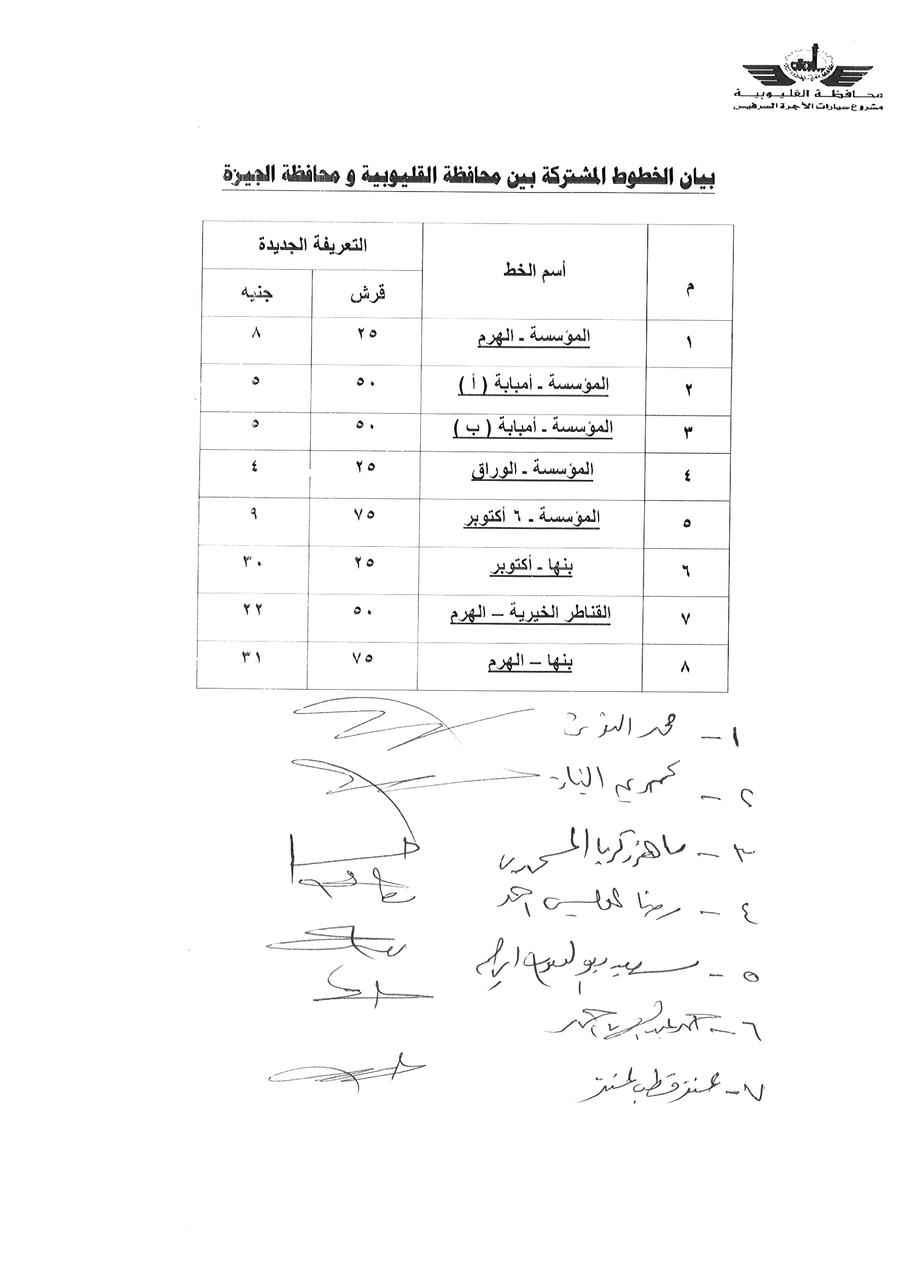 محافظة القليوبية
مشروع سيارات الأجرة السرفيس
بيان الخطوط المشتركة بين محافظة القليوبية و محافظة الجيزة
م أسم الخط التعريفة الجديدة
قرش جنيه
١ المؤسسة ـ الهرم ٢٥ ٨
٢ المؤسسة ـ أمبابة ( أ ) ٥٠ ٥
٣ المؤسسة ـ أمبابة ( ب ) ٥٠ ٥
٤ المؤسسة ـ الوراق ٢٥ ٤
٥ المؤسسة ـ ٦ أكتوبر ٧٥ ٩
٦ بنها ـ أكتوبر ٢٥ ٣٠
٧ القناطر الخيرية – الهرم ٥٠ ٢٢
٨ بنها – الهرم ٧٥ ٣١
١ – محمد
٢ –
٣ – ماهر زكريا
٤ – رضا احمد
٥ – سعيد ابراهيم
٦ – احمد
٧ – قطب